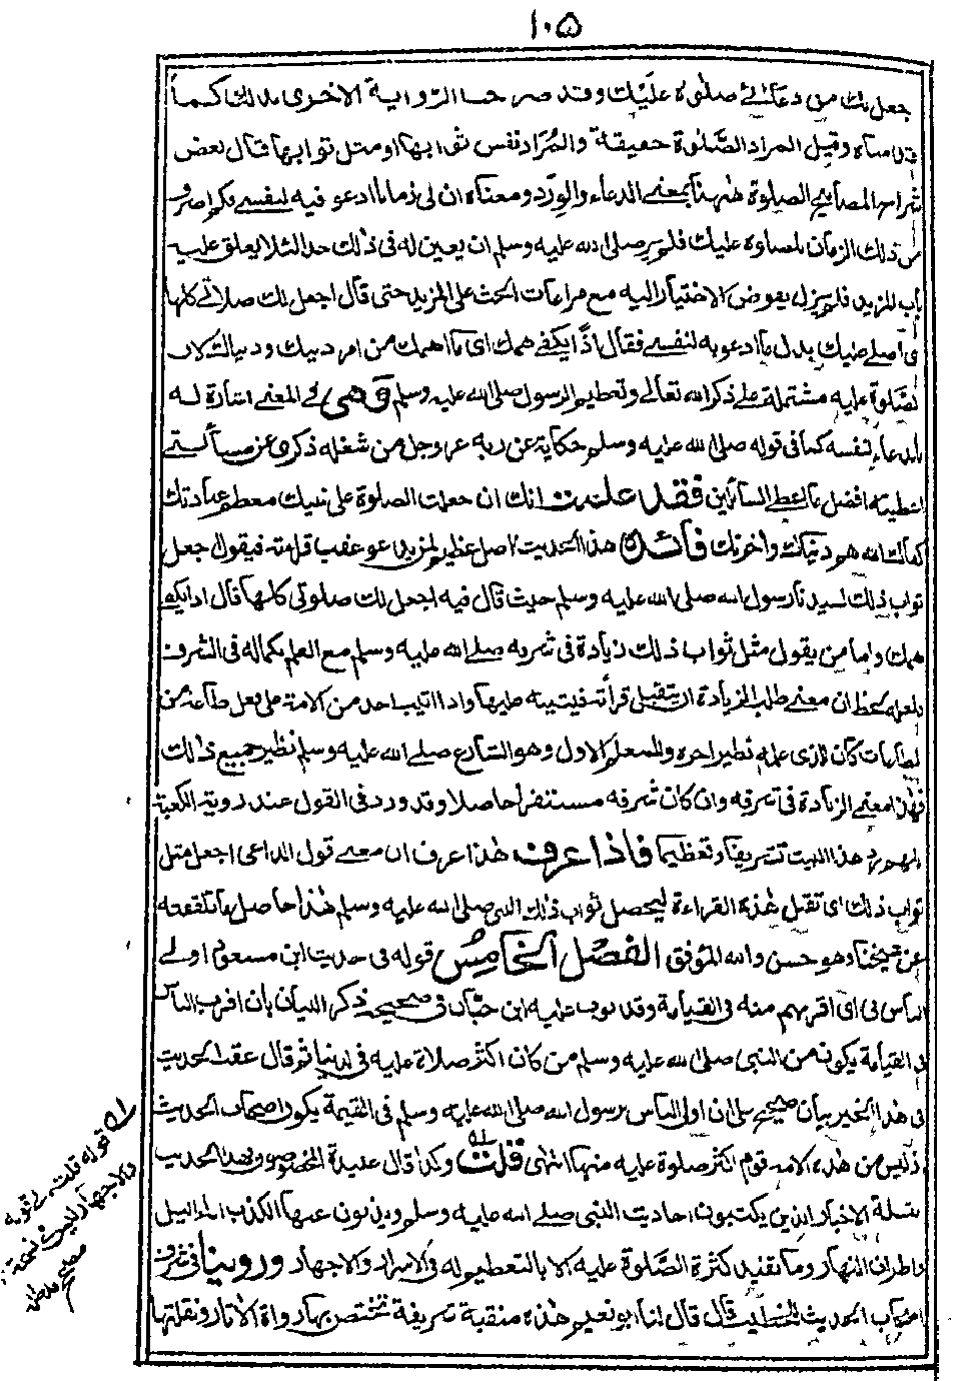 ١٠٥
جعل لك من دعائي صلوة عليك وقد صرحت الرواية الاخرى بذلك كما
قدمناه وقيل المراد الصلوة حقيقة والمراد نفس ثوابها او مثل ثوابها قال بعض
شراح المصابيح الصلوة ههنا بمعنى الدعاء والورد ومعناه ان لي زمانا ادعو فيه لنفسي فكم اصرف
من ذلك الزمان للصلوة عليك فلم ير صلى الله عليه وسلم ان يعين له في ذلك حدا لئلا يغلق عليه
باب المزيد فلم يزل يفوض الاختيار اليه مع مراعات الحث على المزيد حتى قال اجعل لك صلاتي كلها
اي اصلي عليك بدل ما ادعو به لنفسي فقال اذا يكفي همك اي ما اهمك من امر دينك ودنياك لان
الصلوة عليه مشتملة على ذكر الله تعالى وتعظيم الرسول صلى الله عليه وسلم وهي في المعنى اشارة له
بالدعاء لنفسه كما في قوله صلى الله عليه وسلم حكاية عن ربه عز وجل من شغله ذكري عن مسألتي
اعطيته افضل ما اعطي السائلين فقد علمت انك ان جعلت الصلوة على نبيك معظم عبادتك
كفاك الله هم دنياك واخرتك فائدة هذا الحديث اصل عظيم لمن يدعو عقب قراءته فيقول اجعل
ثواب ذلك لسيدنا رسول الله صلى الله عليه وسلم حيث قال فيه اجعل لك صلوتي كلها قال اذا يكفي
همك واما من يقول مثل ثواب ذلك زيادة في شرفه صلى الله عليه وسلم مع العلم بكماله في الشرف
فلعله لحظ ان معنى طلب الزيادة ان يتقبل قرأته فيثيبه عليها واذا اثيب احد من الامة على فعل طاعة من
الطاعات كان للذي علمه نظير اجره وللمعلم الاول وهو الشارع صلى الله عليه وسلم نظير جميع ذلك
فهذا معنى الزيادة في شرفه وان كان شرفه مستقرا حاصلا وقد ورد في القول عند روية الكعبة
اللهم زد هذا البيت تشريفا وتعظيما فاذا عرف هذا عرف ان معنى قول الداعي اجعل مثل
ثواب ذلك اي تقبل هذه القراءة ليحصل ثواب ذلك للنبي صلى الله عليه وسلم هذا حاصل ما تلقفته
عن شيخنا وهو حسن والله الموفق الفصل الخامس قوله في حديث ابن مسعود اولى
الناس بي اي اقربهم منه في القيامة وقد بوب عليه ابن حبان في صحيحه ذكر البيان بان اقرب الناس
في القيامة يكون من النبي صلى الله عليه وسلم من كان اكثر صلاة عليه في الدنيا ثم قال عقب الحديث
في هذا الخبر بيان صحيح على ان اولى الناس برسول الله صلى الله عليه وسلم في القيمة يكون اصحاب الحديث
اذ ليس من هذه الامة قوم اكثر صلوة عليه منها انتهى قلت وكذا قال عبيدة المخصوص بهذا الحديث
نقلة الاخبار الذين يكتبون احاديث النبي صلى الله عليه وسلم ويذبون عنها الكذب اناء الليل
واطراف النهار وما تفيد كثرة الصلوة عليه الا بالتعظيم له في الاسرار والاجهار وروينا في شرف
اصحاب الحديث للخطيب قال قال لنا ابو نعيم هذه منقبة شريفة تختص بها رواة الاثار ونقلتها
له قوله قلت الى قوله
والاجهار ليس في نسخة